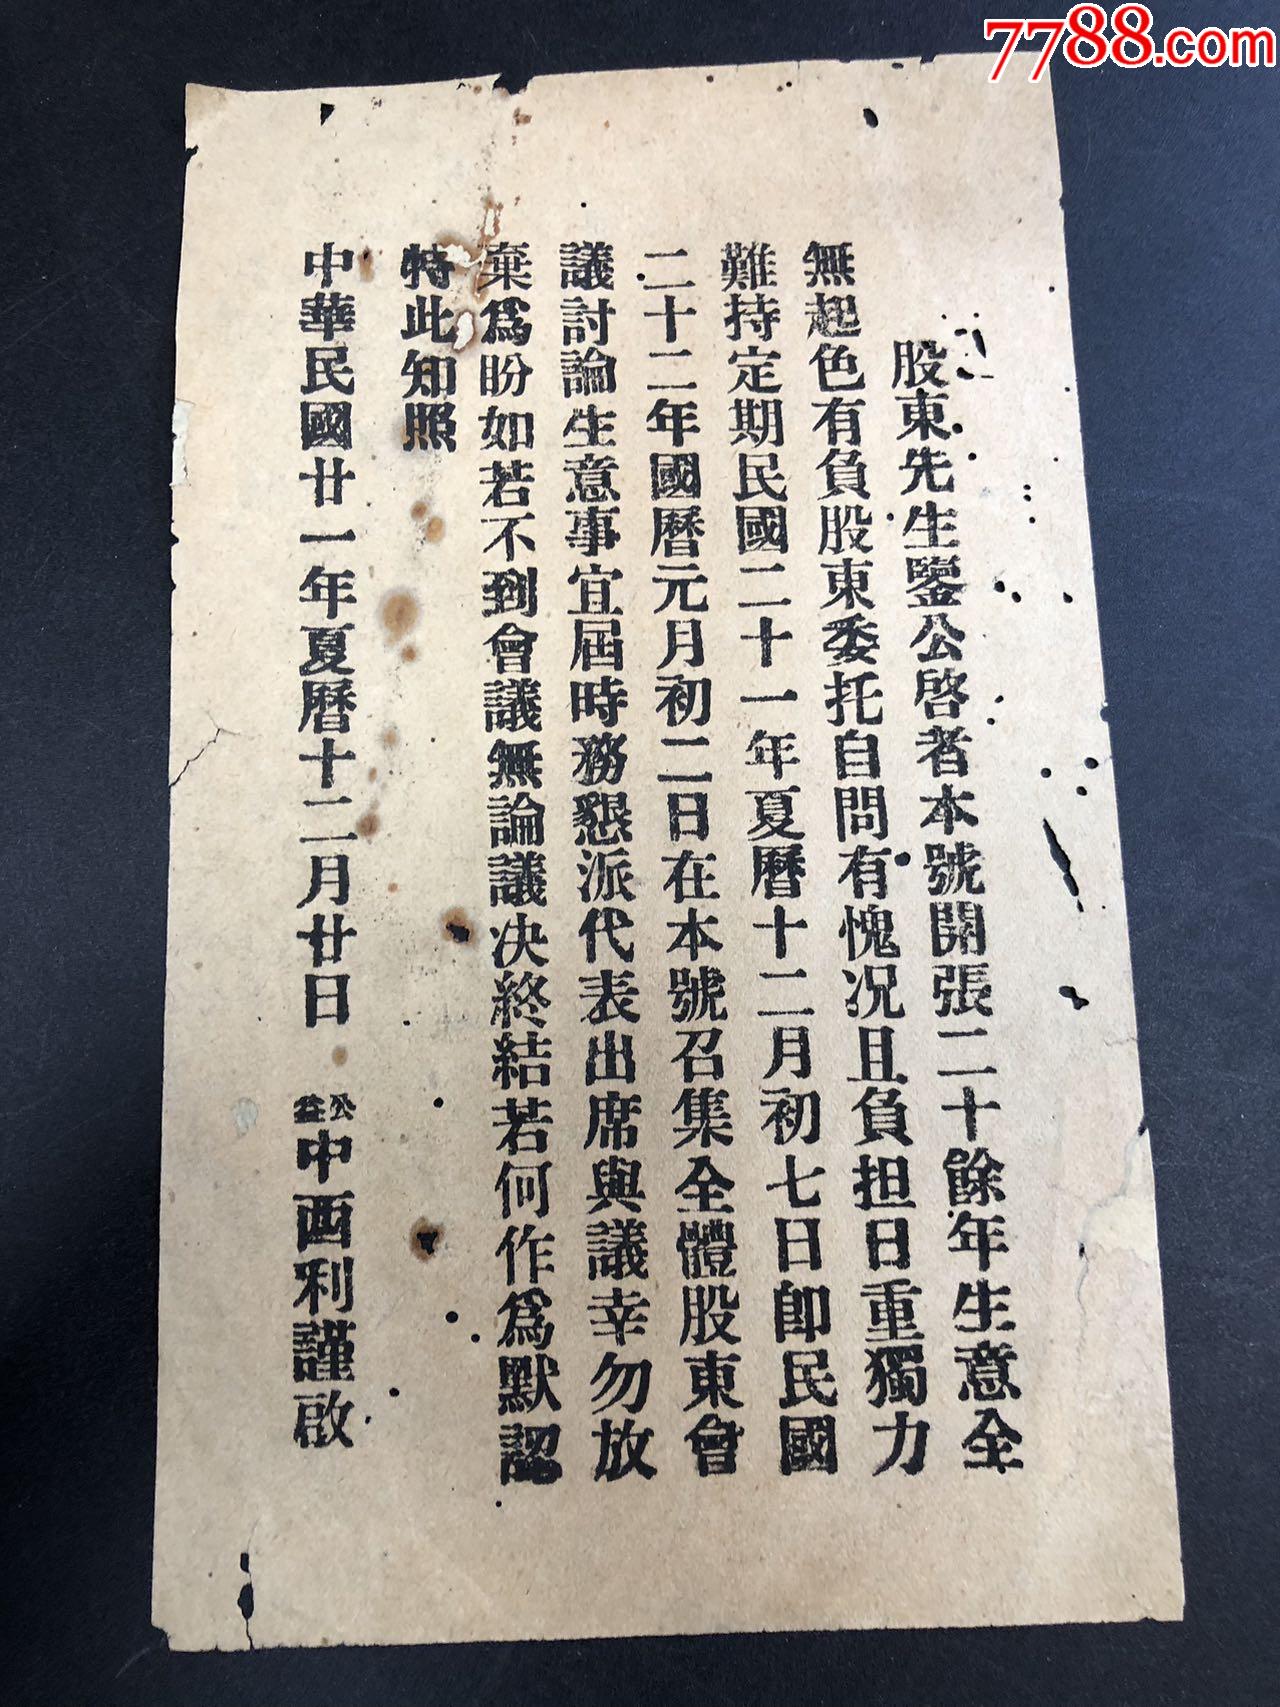 7788.com
股東先生鑒公啓者本號開張二十餘年生意全
無起色有負股東委托自問有愧况且負担日重獨力
難持定期民國二十一年夏曆十二月初七日卽民國
二十二年國曆元月初二日在本號召集全體股東會
議討論生意事宜屆時務懇派代表出席與議幸勿放
棄爲盼如若不到會議無論議决終結若何作爲默認
特此知照
中華民國廿一年夏曆十二月廿日 公益中西利謹啟